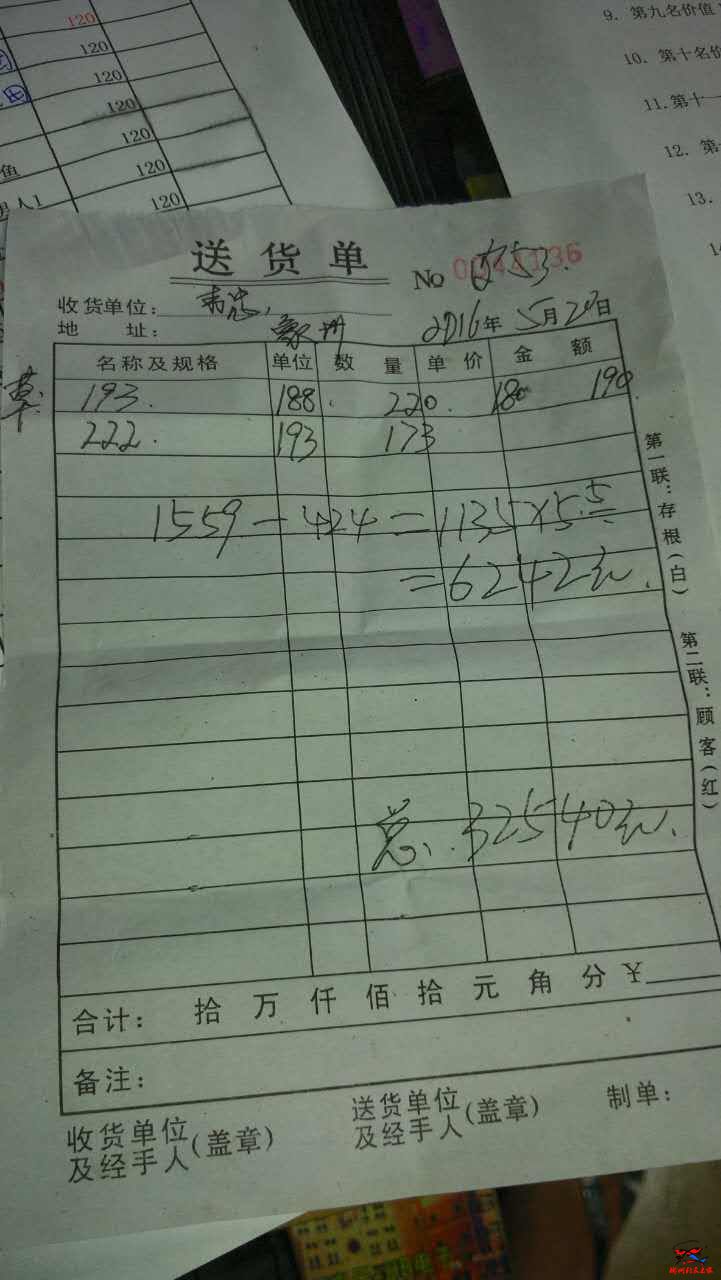 120
120
120
120
120
120
120
鱼
9. 第九名价值
10. 第十名价
11. 第十一
12. 第
13.
送货单
No 0044136
753.
收货单位:
地 址:
2016年 5月20日
名称及规格 单位 数 量 单 价 金 额
草
193. 188. 220. 180 190
222. 193 173
1559-424=1135×5.5
=6242元.
总. 32540元.
第一联:存根(白)
第二联:顾客(红)
合计: 拾 万 仟 佰 拾 元 角 分 ¥
备注:
收货单位及经手人(盖章)
送货单位及经手人(盖章)
制单: